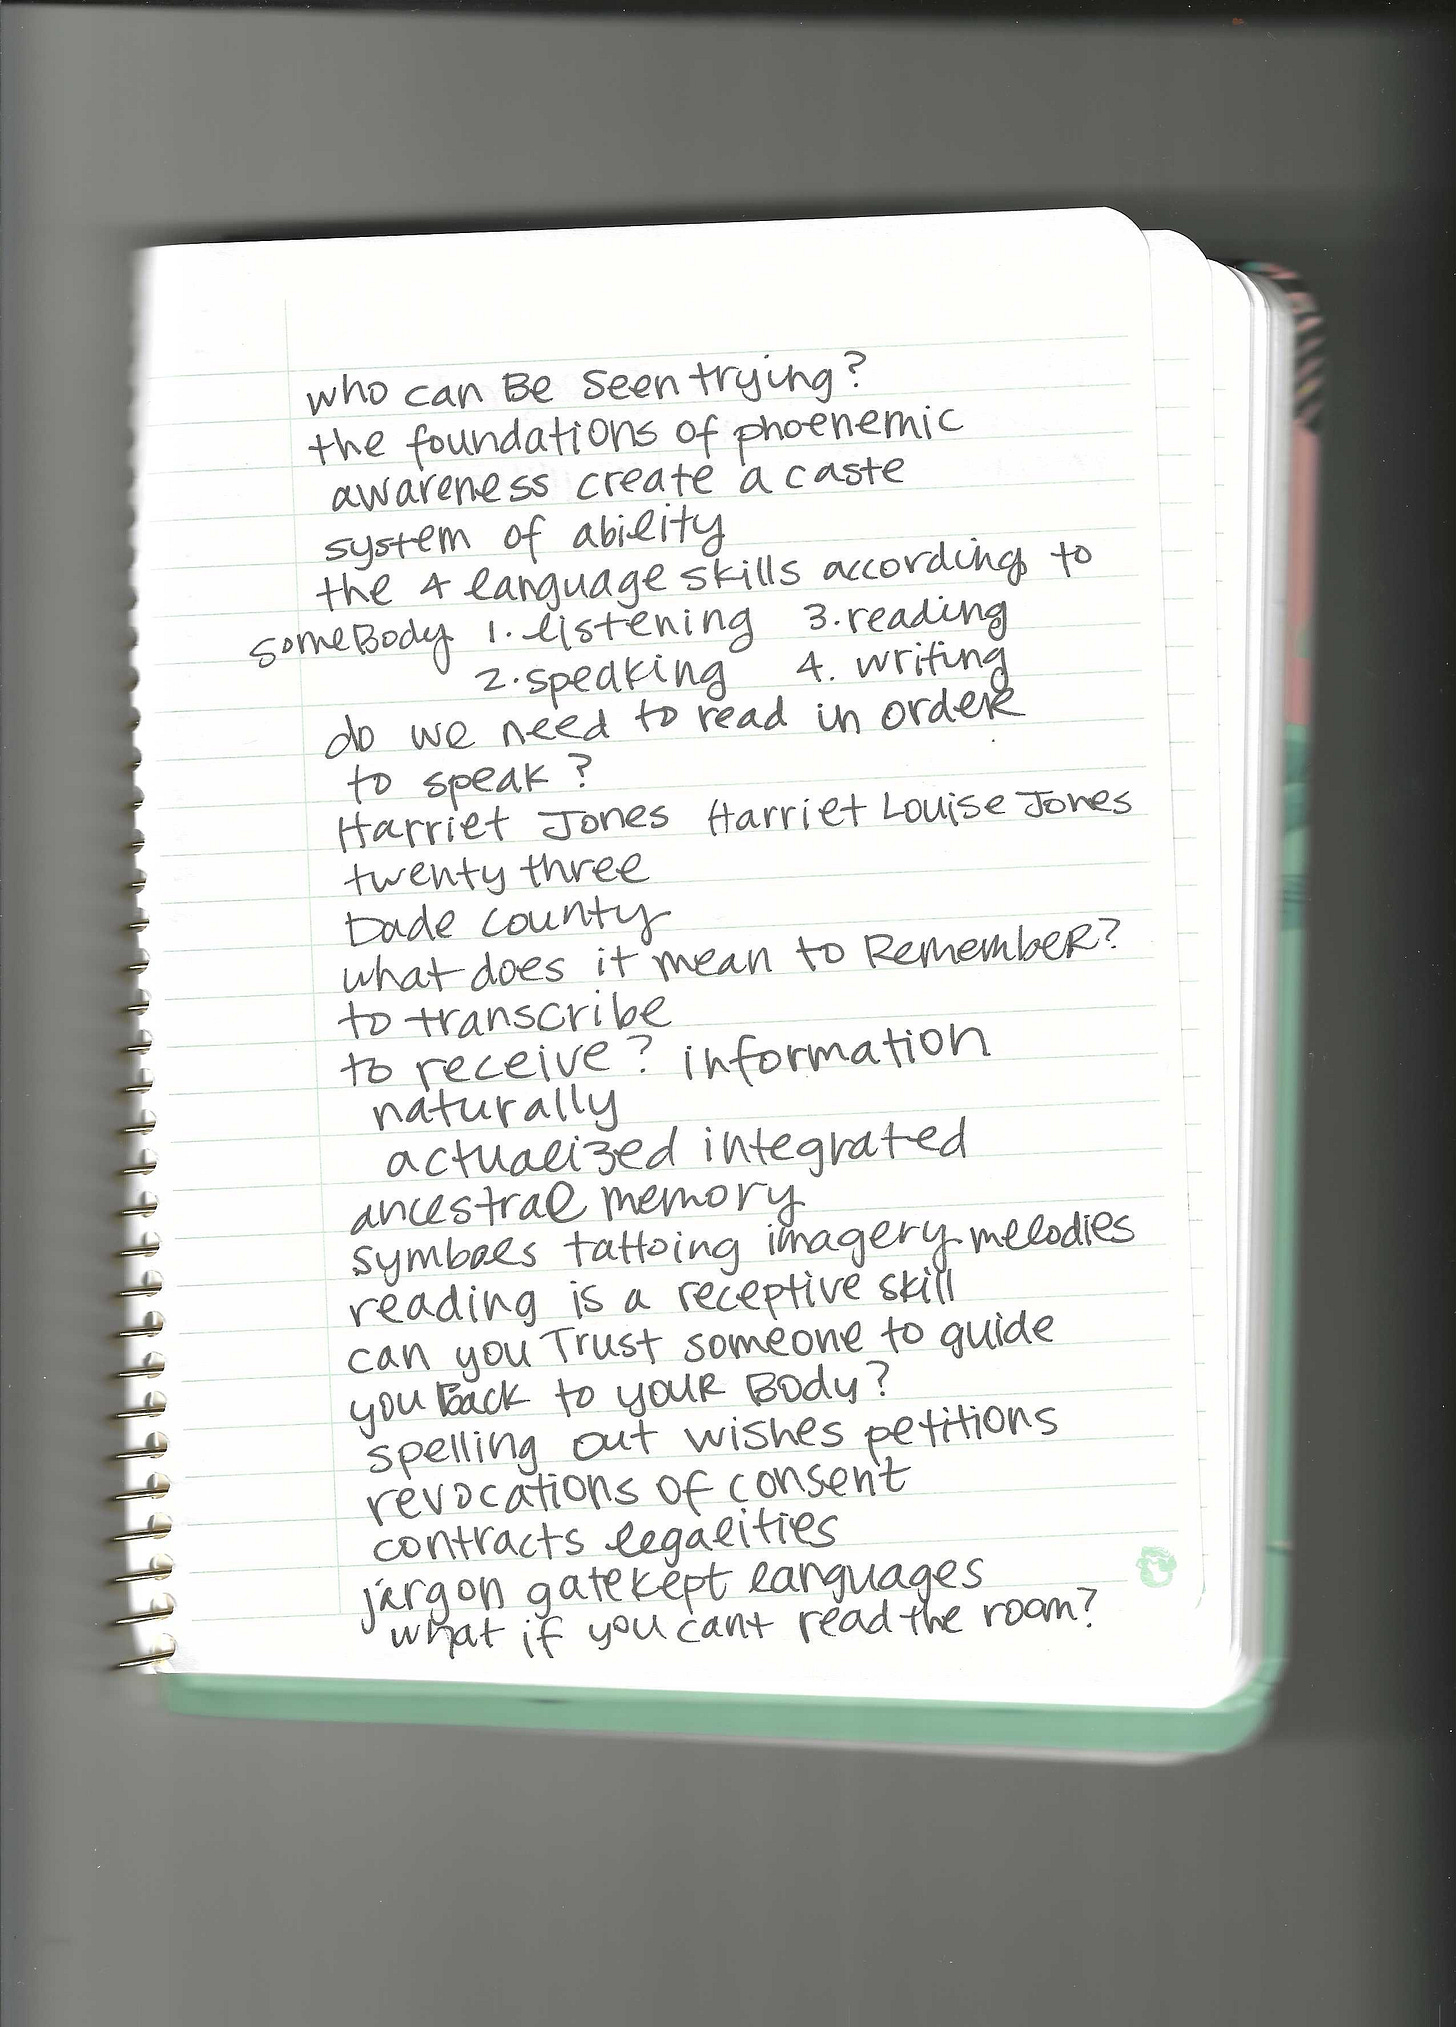 who can Be Seen trying?
the foundations of phoenemic
awareness create a caste
system of ability
the 4 language skills according to
someBody 1. listening 3. reading
2. speaking 4. writing
do we need to read in ordeR
to speak?
Harriet Jones Harriet Louise Jones
twenty three
Dade county
what does it mean to RemembeR?
to transcribe
to receive? information
naturally
actualized integrated
ancestral memory
symbols tattoing imagery melodies
reading is a receptive skill
can you Trust someone to guide
you Back to youR Body?
spelling out wishes petitions
revocations of consent
contracts legalities
jargon gatekept languages
what if you cant read the room?